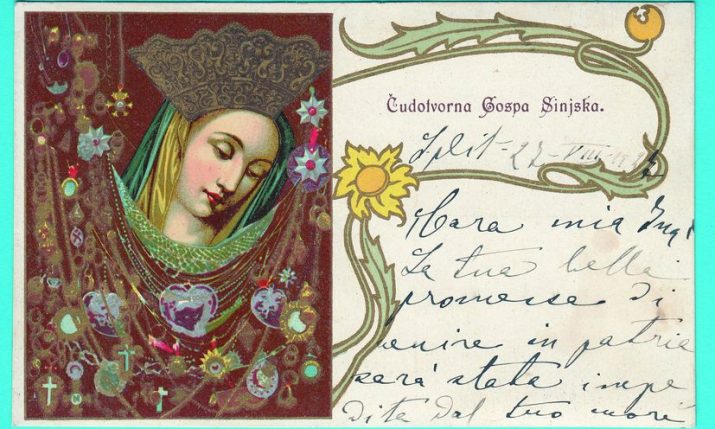 Čudotvorna Gospa Sinjska.
Split - 27 - VIII
Cara mia
La tua bella
promessa di
venire in patria
sará stata impe
dita dal tuo more